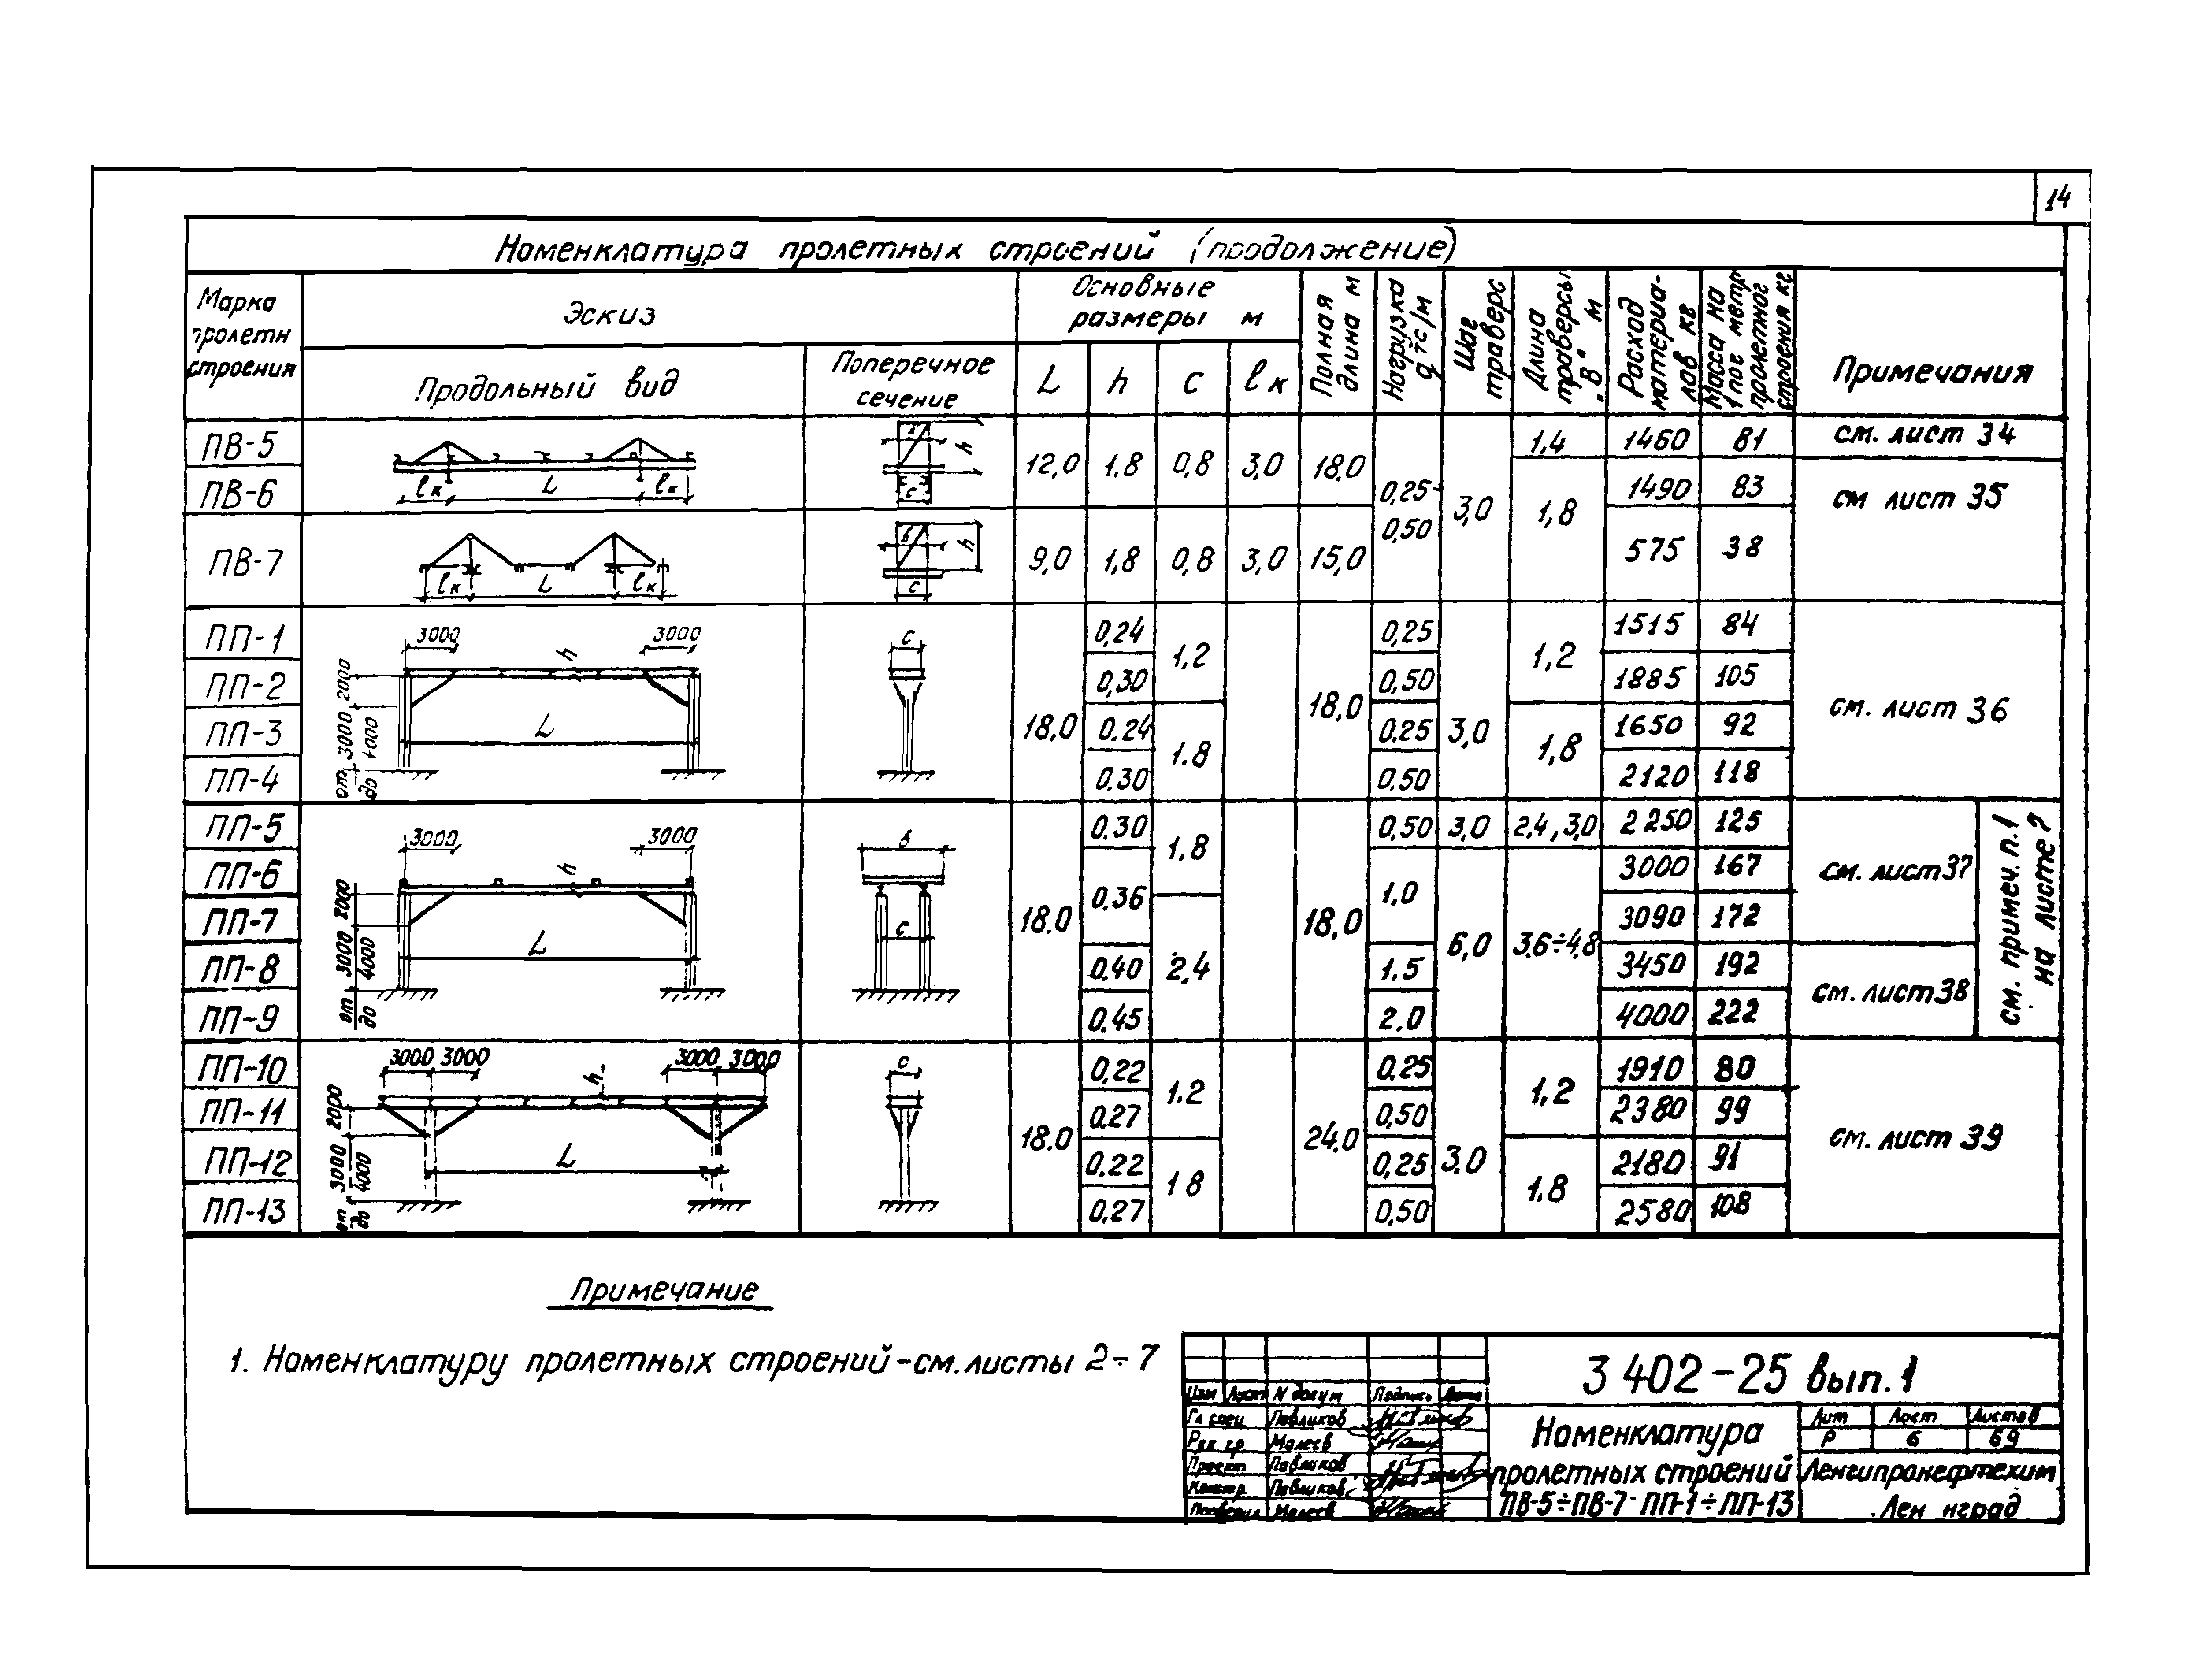 14
Номенклатура пролетных строений (продолжение)
Марка пролетн строения
Эскиз
Продольный вид
Поперечное сечение
Основные размеры м
L h c lк
Полная длина м
Нагрузка q тс/м
Шаг траверс
Длина траверсы "В" м
Расход материалов кг
Масса на 1 пог метр пролетног строения кг
Примечания
ПВ-5
ПВ-6
lк L lк
в h c
12,0 1,8 0,8 3,0 18,0
0,25-0,50
3,0
1,4 1460 81 см. лист 34
1,8
1490 83 см лист 35
ПВ-7
lк L lк
в h c
9,0 1,8 0,8 3,0 15,0
575 38
ПП-1
ПП-2
ПП-3
ПП-4
3000 h 3000
2000
от 3000 до 4000
L
c
18,0
0,24
0,30
0,24
0,30
1,2
1.8
18,0
0,25
0,50
0.25
0,50
3,0
1,2
1,8
1515 84
1885 105
1650 92
2120 118
см. лист 36
ПП-5
ПП-6
ПП-7
ПП-8
ПП-9
3000 h 3000
2000
от 3000 до 4000
L
в
c
18.0
0.30
0.36
0,40
0.45
1.8
2,4
18.0
0,50 3,0 2.4, 3,0 2250 125
1,0
1.5
2.0
6,0
3.6÷4,8
3000 167
3090 172
3450 192
4000 222
см. лист 37
см. лист 38
см. примеч. п. 1 на листе 2
ПП-10
ПП-11
ПП-12
ПП-13
3000 3000 h 3000 3000
2000
от 3000 до 4000
L
c
18.0
0,22
0,27
0,22
0,27
1.2
1 8
24.0
0.25
0,50
0,25
0,50
3.0
1.2
1.8
1910 80
2380 99
2180 91
2580 108
см. лист 39
Примечание
1. Номенклатуру пролетных строений-см. листы 2÷7
3 402-25 вып. 1
Изм Лист N докум Подпись Дата
Гл спец Павликов
Рук гр Малеев
Проект Павликов
Констр Павликов
Проверил Малеев
Номенклатура
пролетных строений
ПВ-5÷ПВ-7 ПП-1÷ПП-13
Лит Лист Листов
Р 6 69
Ленгипронефтехим
Лен нград